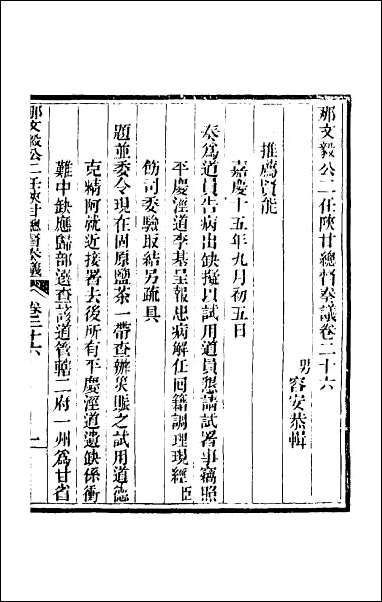 那文毅公二任陝甘總督奏議卷三十六
男容安恭輯
推薦賢能
嘉慶十五年九月初五日
奏爲道員告病出缺擬以試用道員懇請試署事竊照
平慶涇道李基呈報患病解任回籍調理現經臣
飭司委驗取結另疏具
題並委令現在固原鹽茶一帶查辦災賑之試用道德
克精阿就近接署去後所有平慶涇道遺缺係衝
難中缺應歸部選查該道管轄二府一州爲甘省
那文毅公二任陝甘總督奏議
卷三十六
一